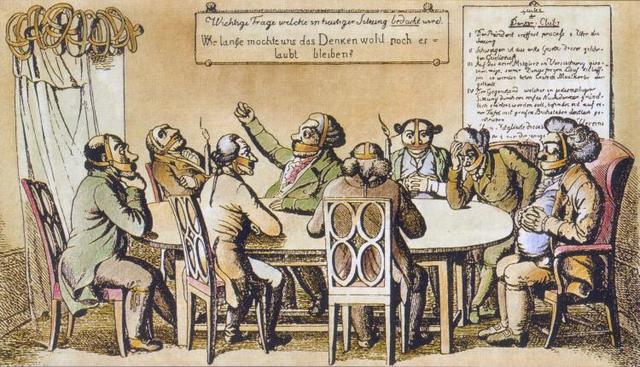 Wichtige Frage welche in heutiger Sitzung bedacht wird.
Wie lange mochte uns das Denken wohl noch er=
laubt bleiben?
Denker-Club
I Der Präsident eröffnet 8 Uhr die
Sitzung
II Schweigen ist das erste Gesetz dieser gelehr-
ten Gesellschaft
III Auf das kein Mitglied in Versuchung
möge, seiner Zunge freyen Lauf
so werden beim Maulkörbe
IV Der Gegenstand welcher in jedesmaliger
Sitzung durch ein reifes Nachdenken gründ-
lich werden soll, befindet sich auf ei-
ner Tafel mit großen Buchstaben deutlich ge-
schrieben